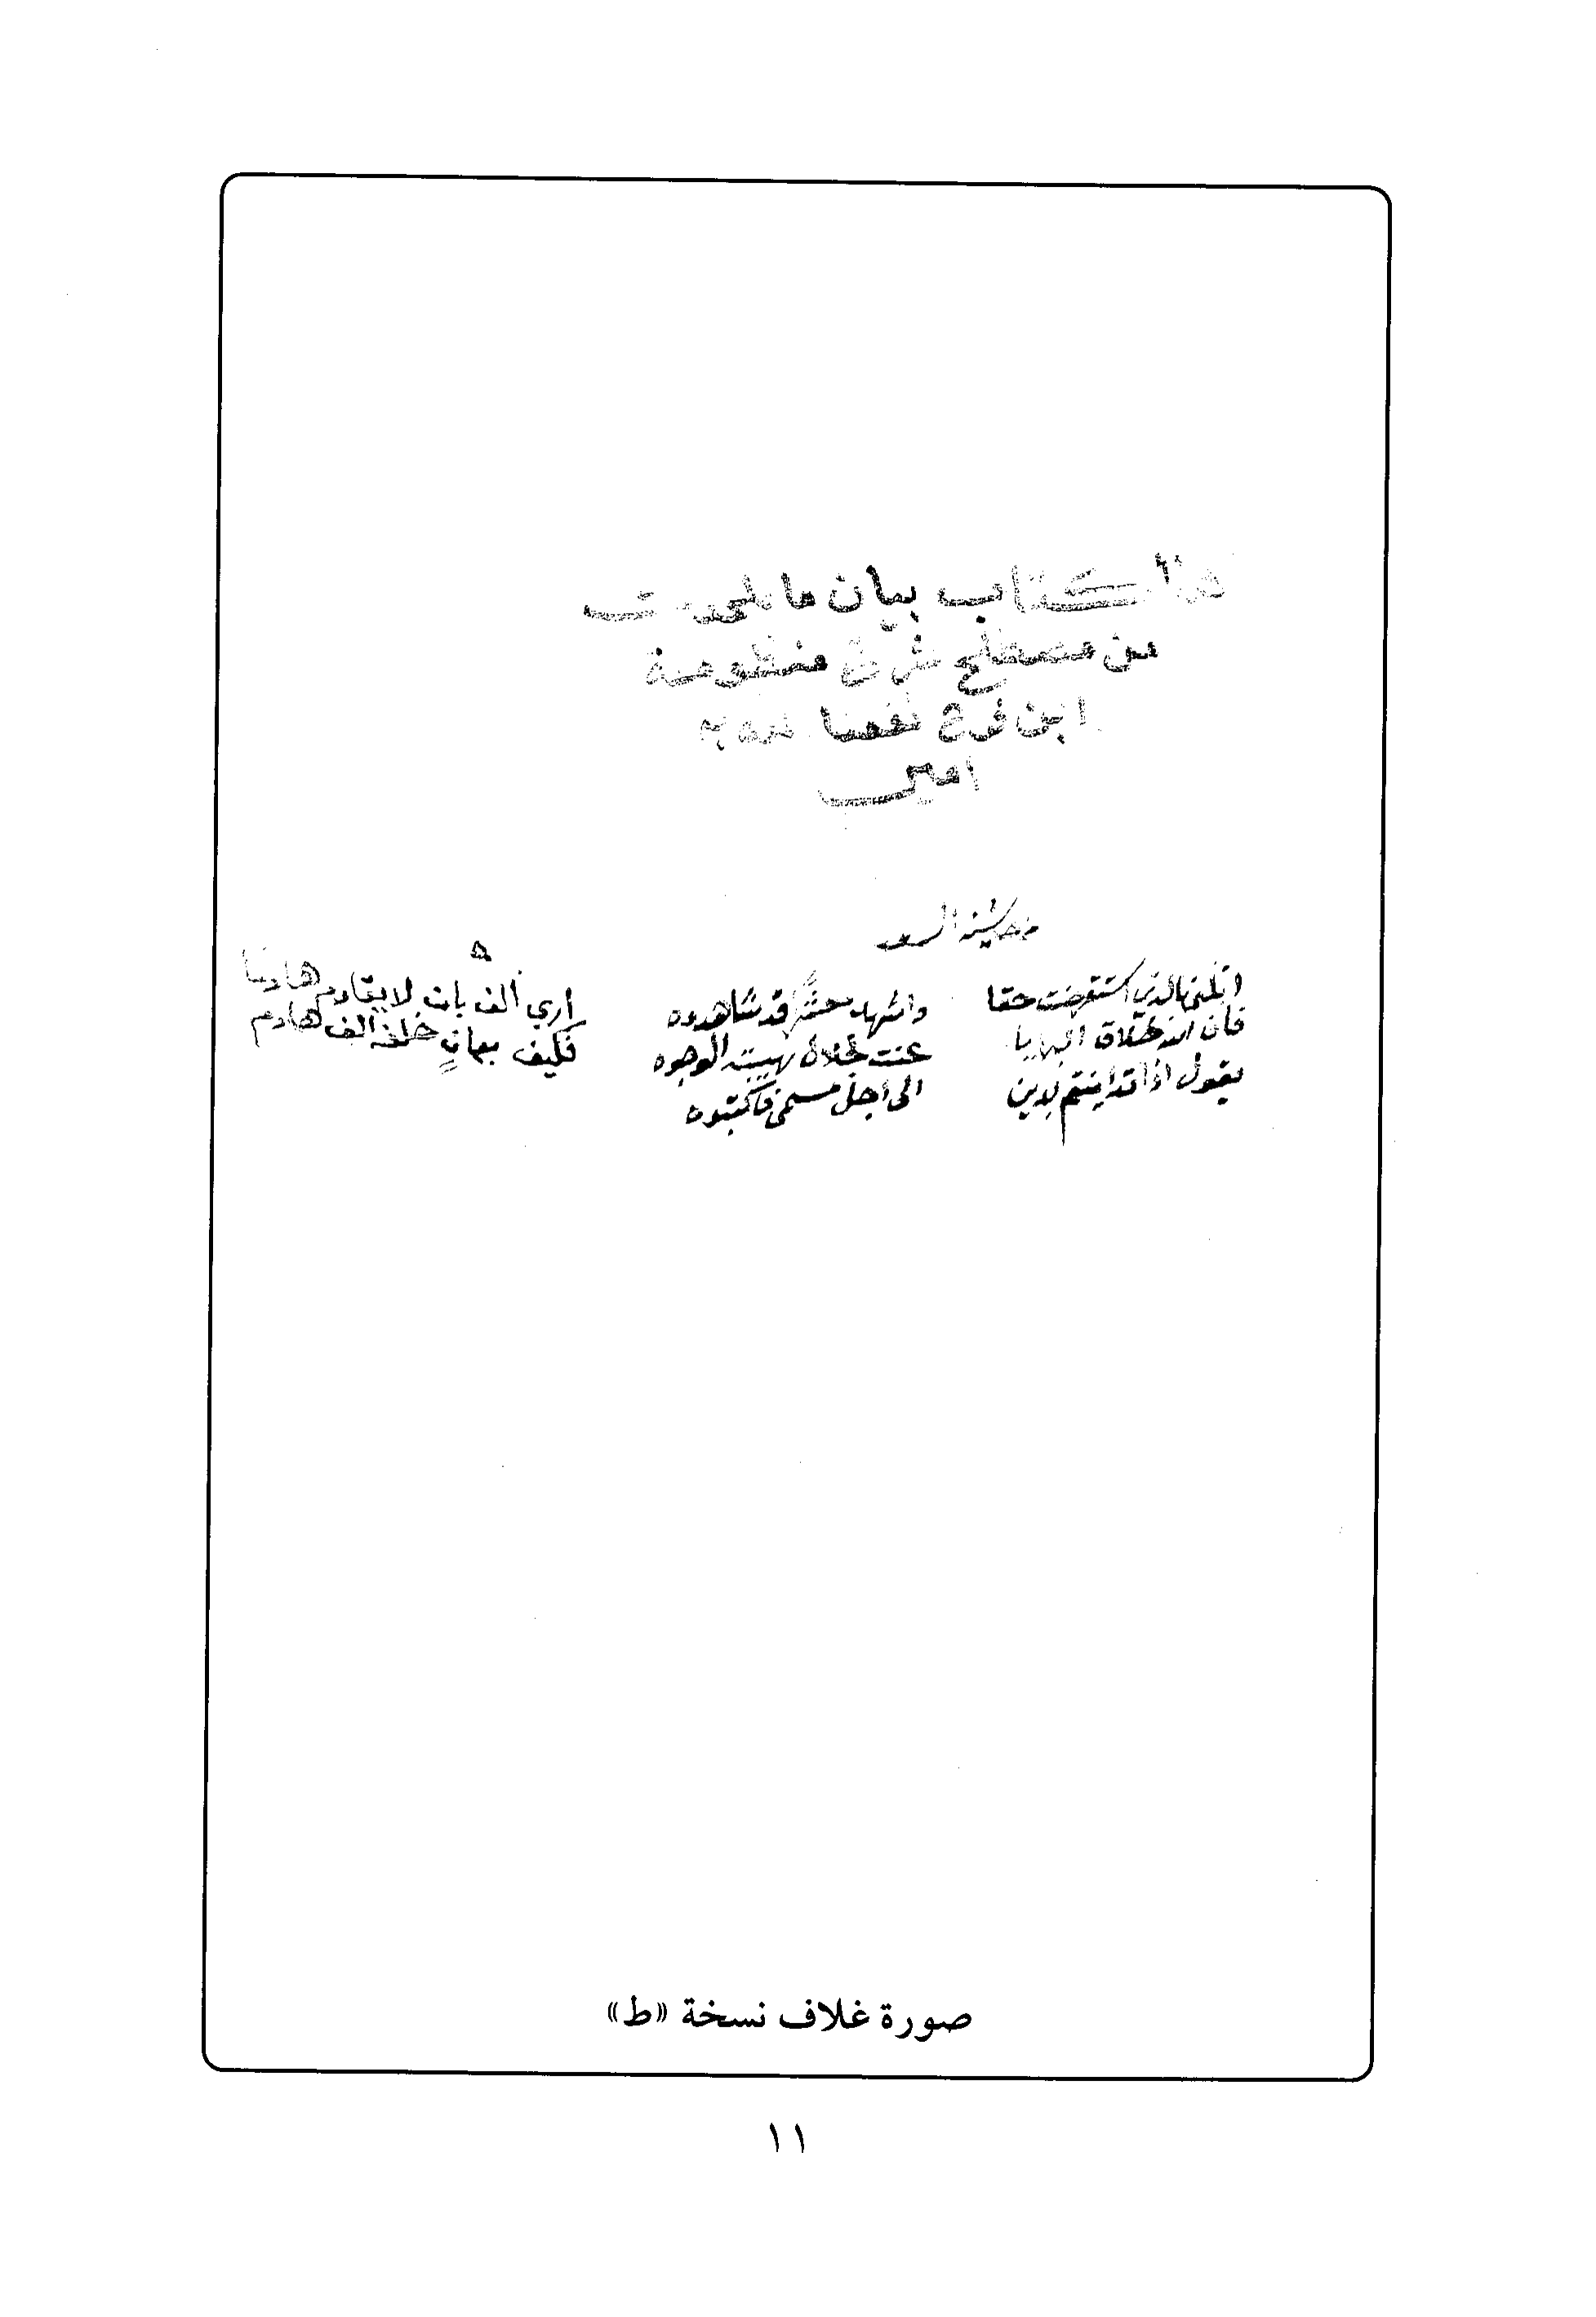 هذا كتاب بيان ما
من مصطلح شرح منظومة
ابن فرح نفعنا الله به
امين
انلني بالذي استقرضت حقا واشهد معشرا قد شاهدوه
فان الله خلاق البرايا عنت لجلال هيبته الوجوه
يقول اذا تداينتم بدين الى اجل مسمى فاكتبوه
اري الف بان لا يقاوم هادما
فكيف ببان خلفه الف هادم
صورة غلاف نسخة «ط»
١١